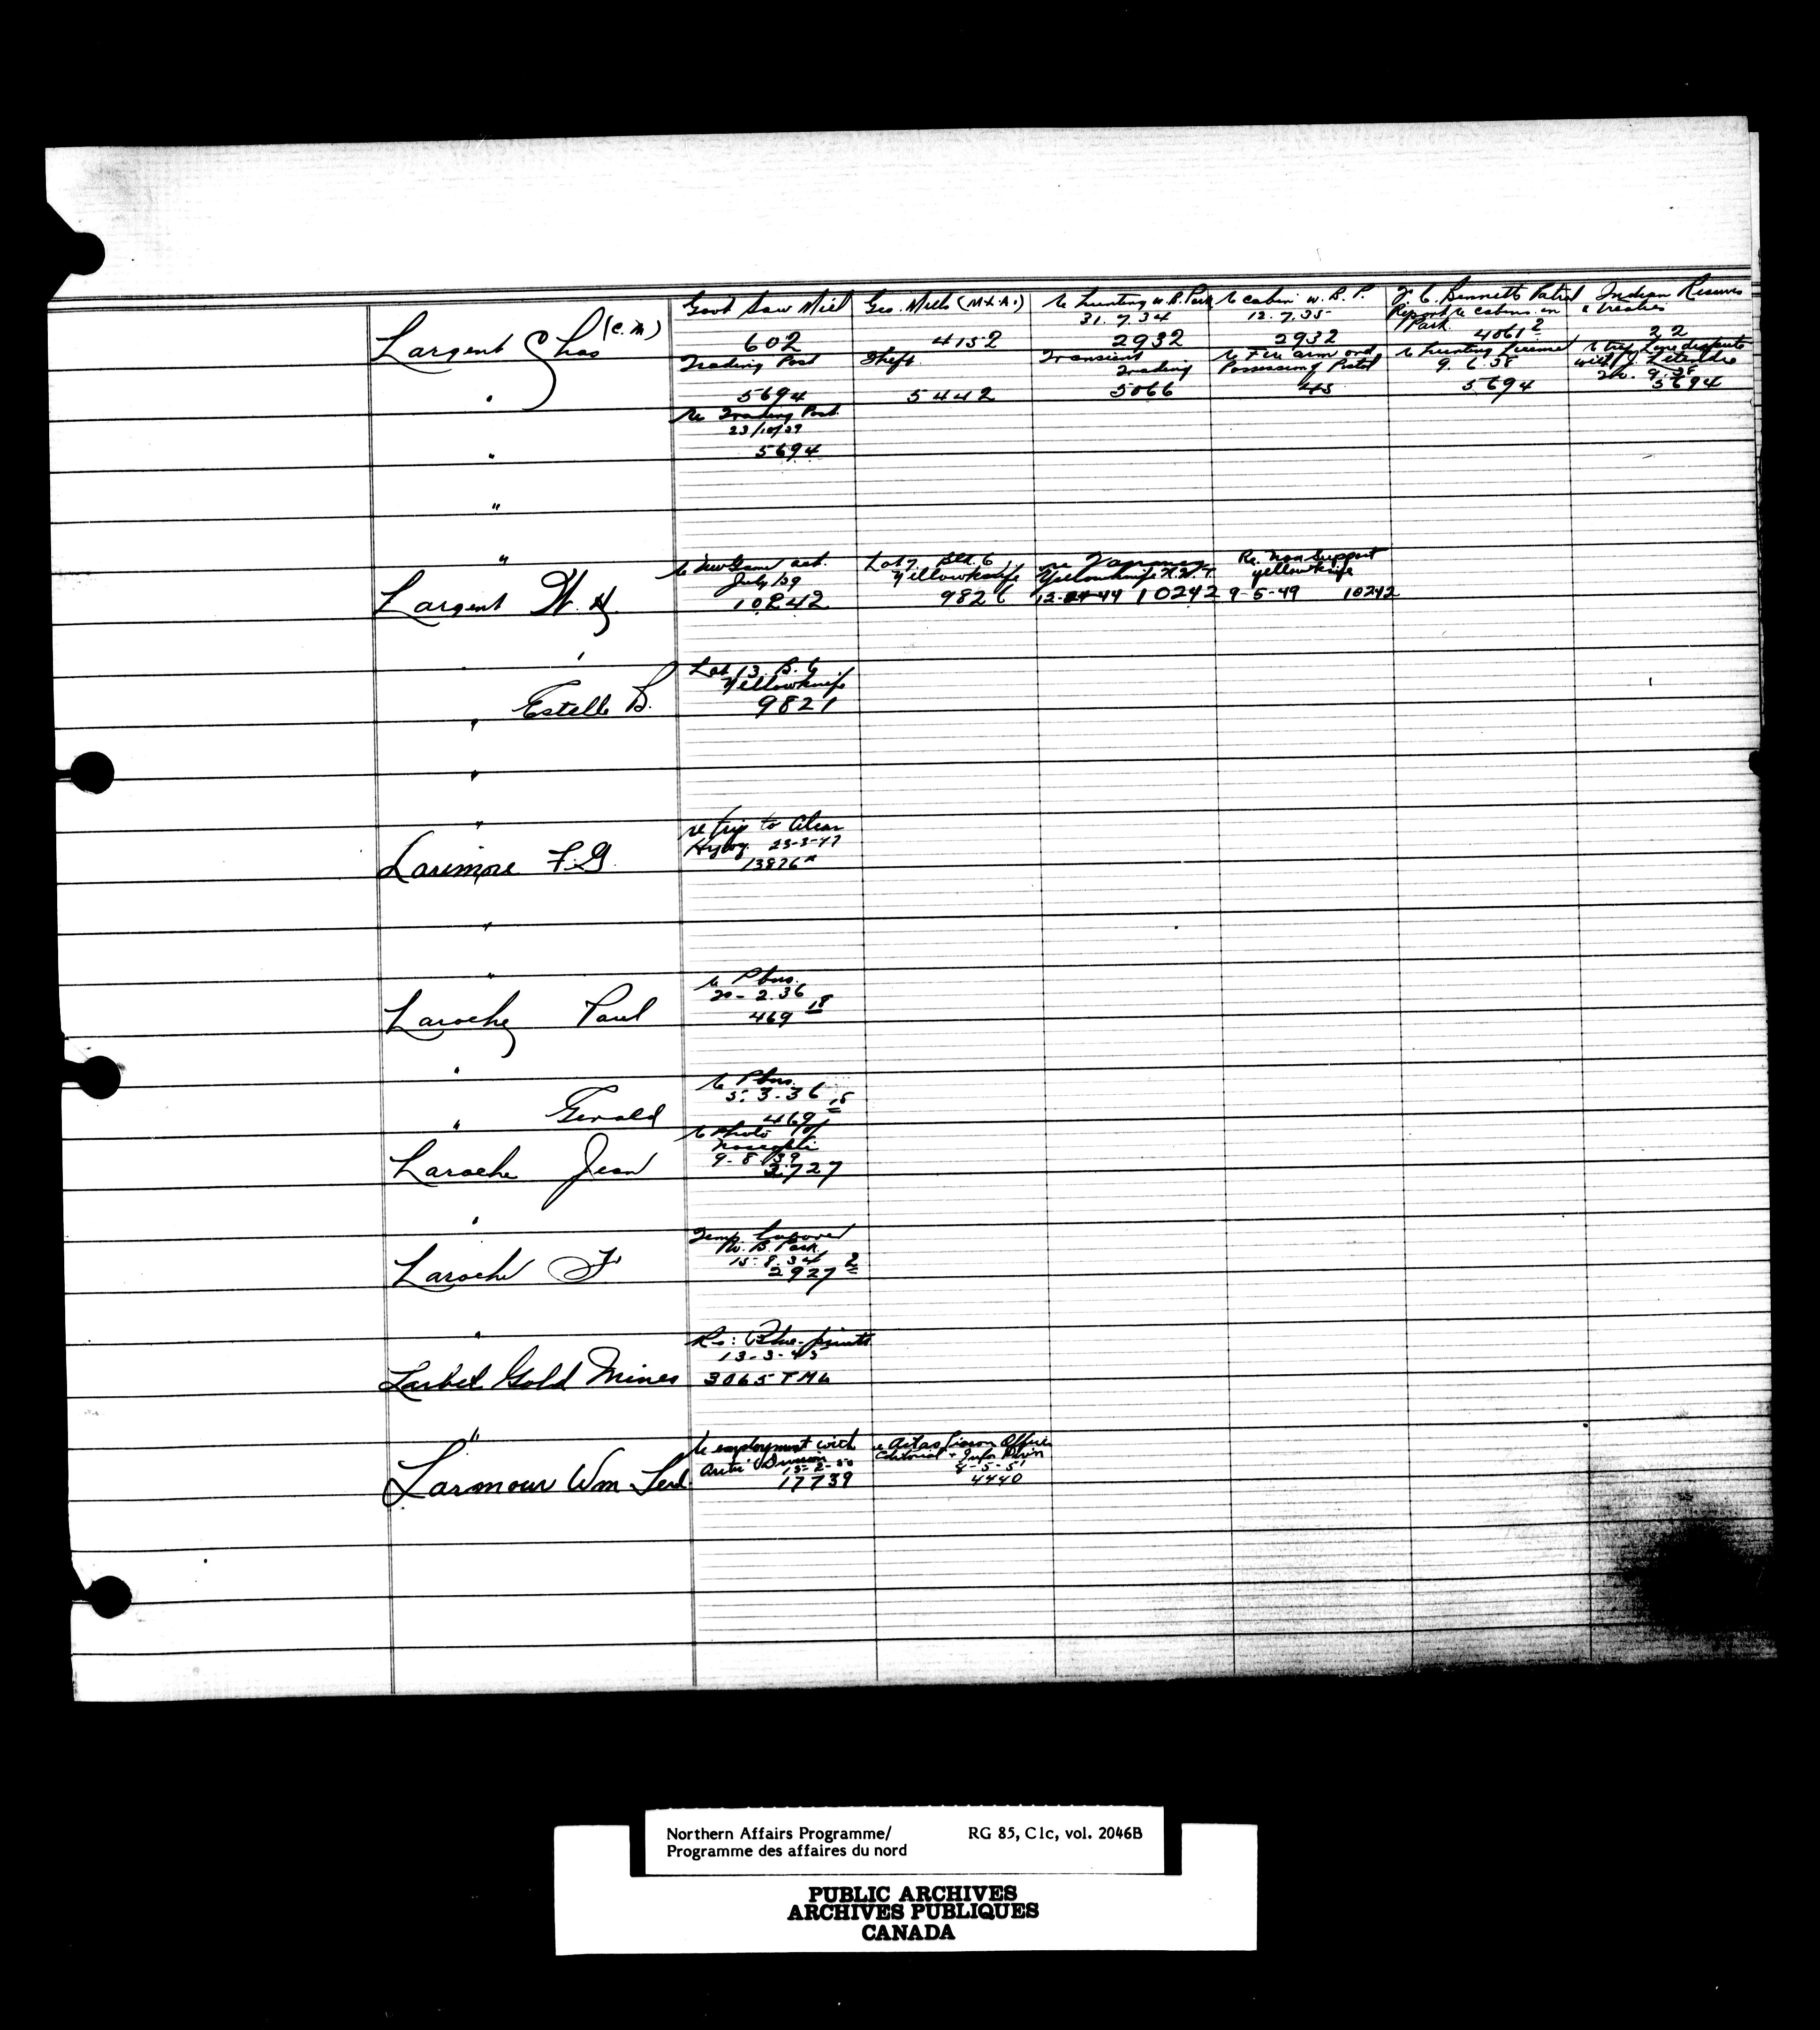 Largent Chas (C.M)
Govt Saw Mill
602
Geo. Mills (M.L.A.)
4152
re hunting W.B. Park
31.7.34
2932
re cabin W.B.P.
12.7.35
2932
Bennett Patrol
Report re cabins in
Park. 4061 2
Indian Reserves
& treaties
22
"
Trading Post
5694
Theft
5442
Transient
Trading
5066
re Fire arm and
Possession of Pistol
45
re hunting license
9.6.38
5694
re trap line dispute
with
5694
"
Re Trading Post
23/10/39
5694
"
"
Largent W. H.
re New Game act.
July/39
10242
Lot 7. Blk. 6
Yellowknife
9826
re
Yellowknife N.W.T.
12-24-44 10242
Re. Non Support
Yellowknife
9-5-49 10242
"
" Estelle B.
Lot 13. B. 6
Yellowknife
9821
"
"
Larimore F.G.
re trip to Alcan
Hyway. 23-3-47
13876
"
"
Laroche Paul
re Pbus.
20-2.36
469 18
"
" Gerald
re Pbus.
5.3-36
469 18
Laroche Jean
re Photo of
9-8/39
2727
"
Laroche F
Temp. Laborer
W.B. Park.
15.8.34
2927 2
"
Larbel Gold Mines
Re: Blue-prints
13-3-45
3065 TM6
"
Larmour Wm
re employment with
Arctic Division
13-2-50
17739
re Act as Liaison Officer
Editorial + Info Divn
8-5-51
4440
Northern Affairs Programme/ RG 85, C1c, vol. 2046B
Programme des affaires du nord
PUBLIC ARCHIVES
ARCHIVES PUBLIQUES
CANADA